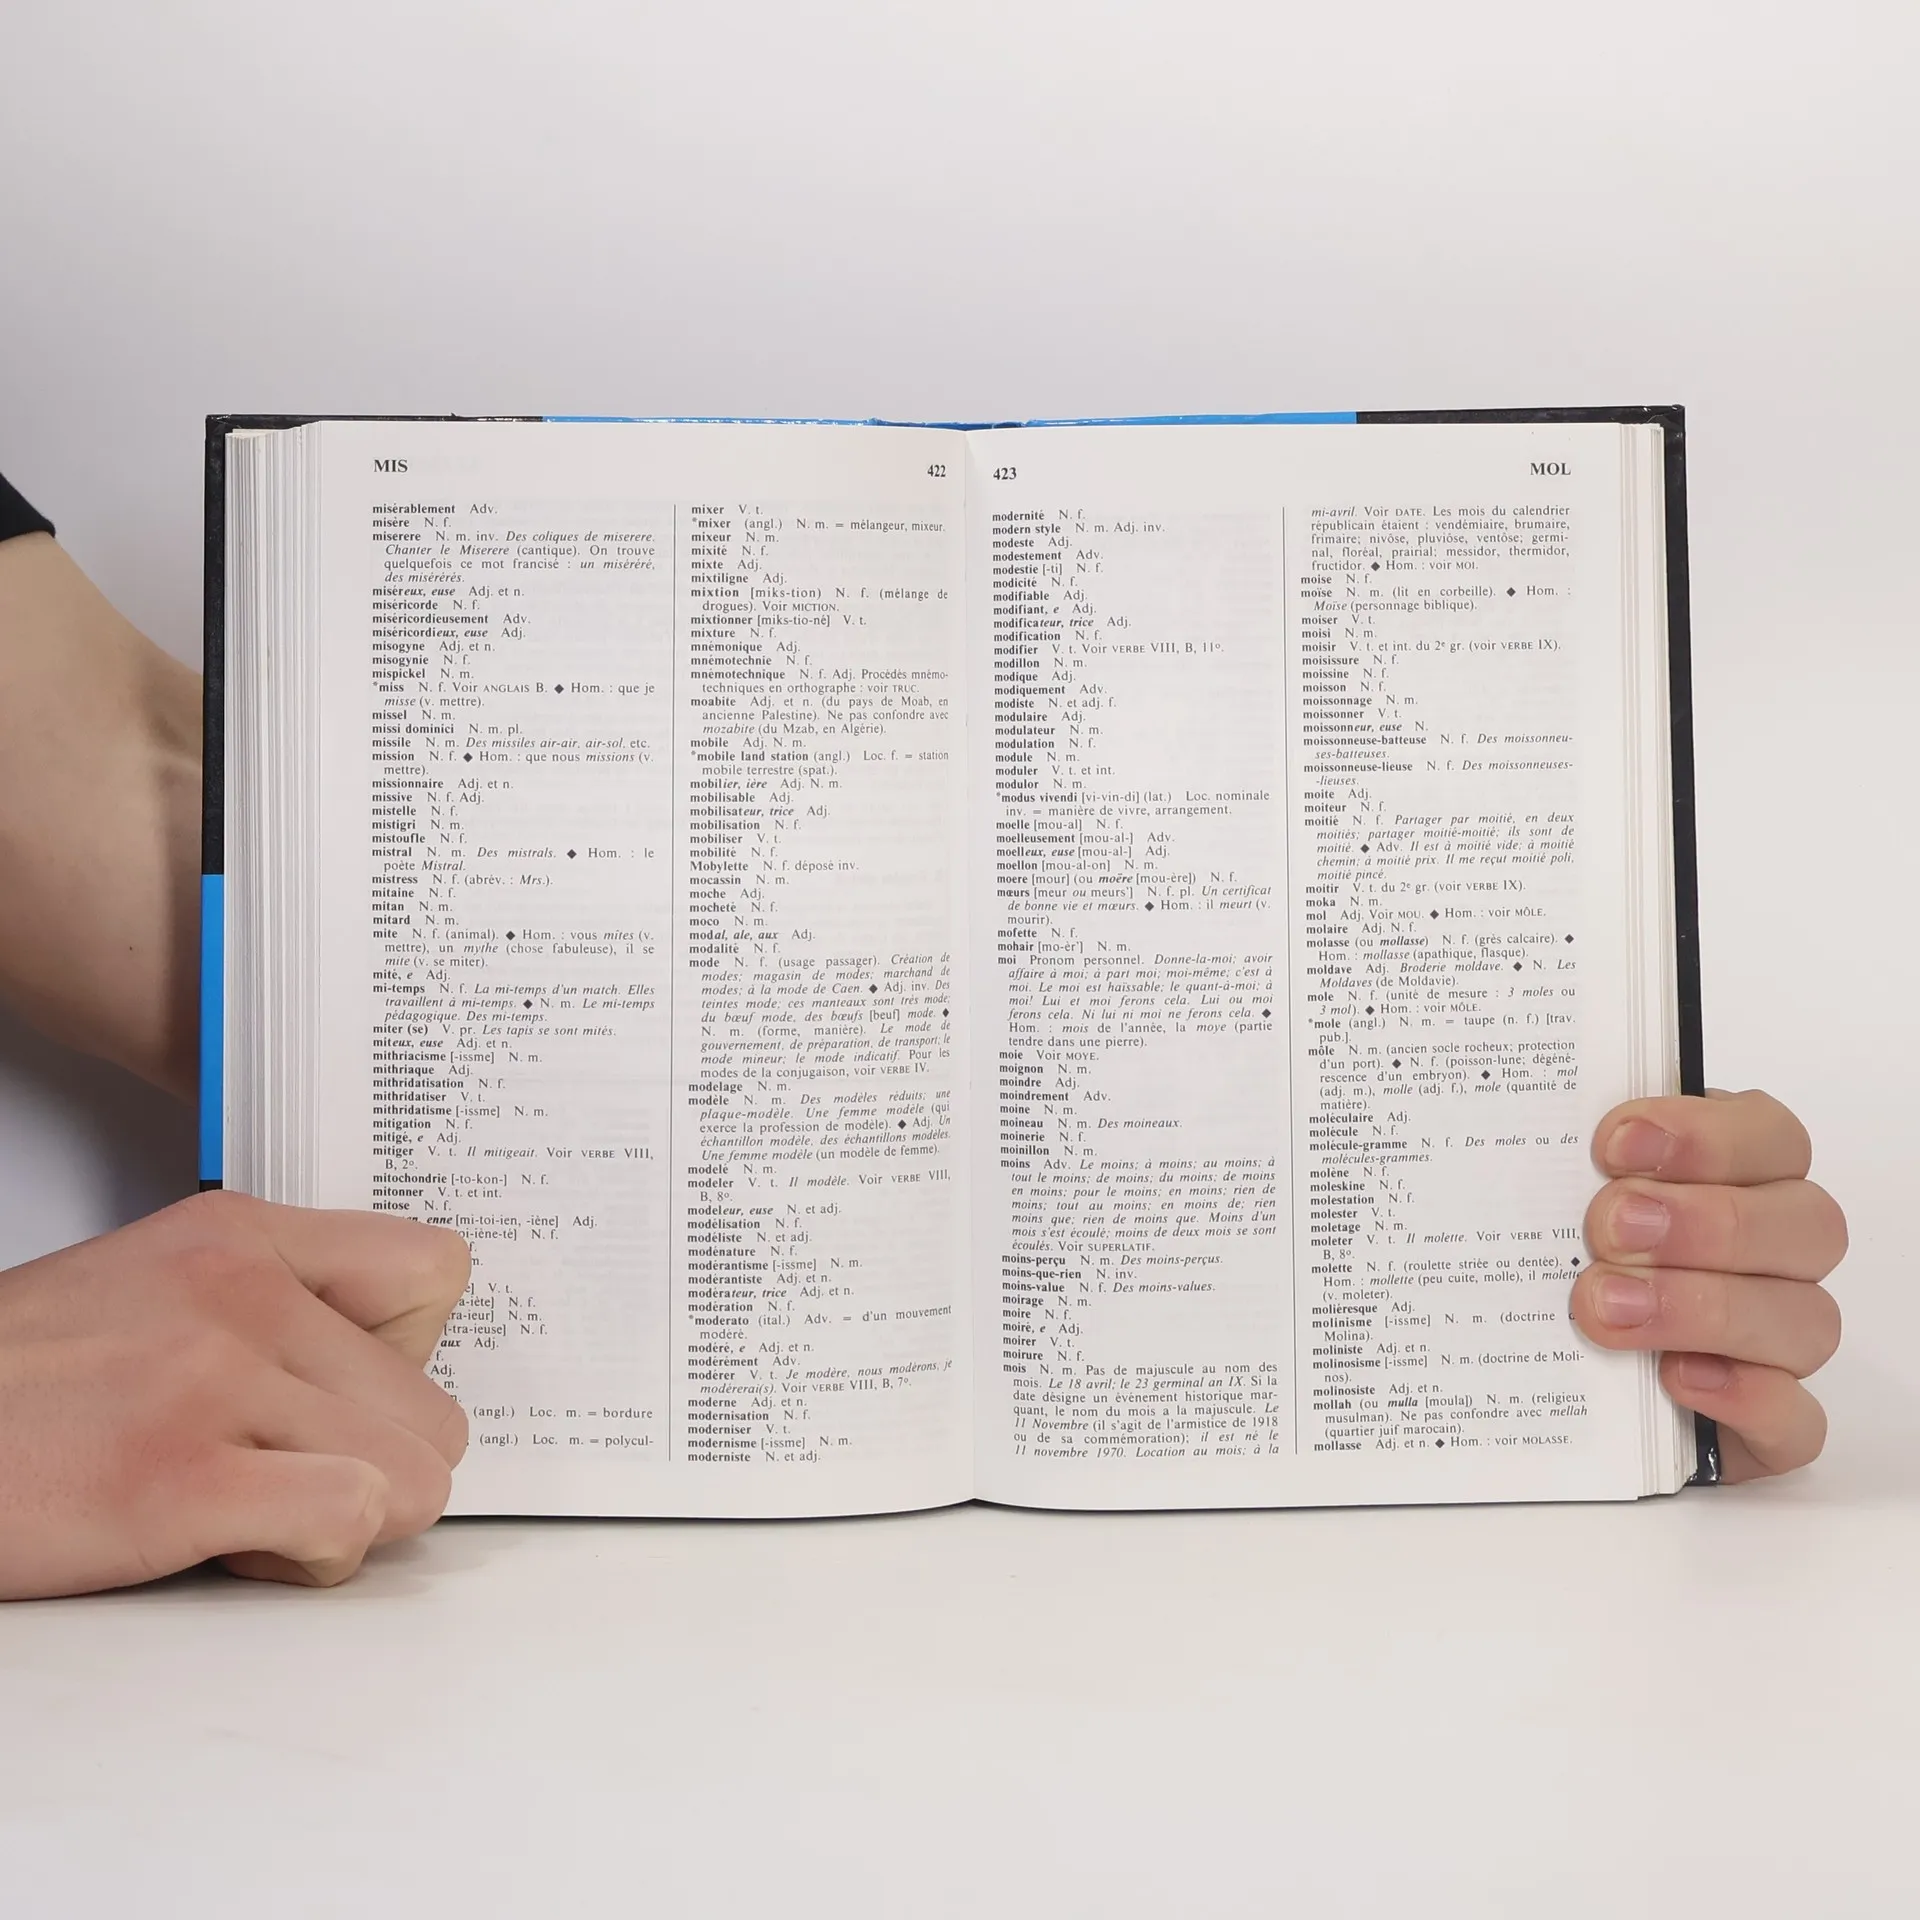 MIS
422
misérablement Adv.
misère N. f.
miserere N. m. inv. Des coliques de miserere.
Chanter le Miserere (cantique). On trouve
quelquefois ce mot francisé : un miséréré,
des misérérés.
miséreux, euse Adj. et n.
miséricorde N. f.
miséricordieusement Adv.
miséricordieux, euse Adj.
misogyne Adj. et n.
misogynie N. f.
mispickel N. m.
*miss N. f. Voir ANGLAIS B. ◆ Hom. : que je
misse (v. mettre).
missel N. m.
missi dominici N. m. pl.
missile N. m. Des missiles air-air, air-sol, etc.
mission N. f. ◆ Hom. : que nous missions (v.
mettre).
missionnaire Adj. et n.
missive N. f. Adj.
mistelle N. f.
mistigri N. m.
mistoufle N. f.
mistral N. m. Des mistrals. ◆ Hom. : le
poète Mistral.
mistress N. f. (abrév. : Mrs.).
mitaine N. f.
mitan N. m.
mitard N. m.
mite N. f. (animal). ◆ Hom. : vous mîtes (v.
mettre), un mythe (chose fabuleuse), il se
mite (v. se miter).
mité, e Adj.
mi-temps N. f. La mi-temps d'un match. Elles
travaillent à mi-temps. ◆ N. m. Le mi-temps
pédagogique. Des mi-temps.
miter (se) V. pr. Les tapis se sont mités.
miteux, euse Adj. et n.
mithriacisme [-issme] N. m.
mithriaque Adj.
mithridatisation N. f.
mithridatiser V. t.
mithridatisme [-issme] N. m.
mitigation N. f.
mitigé, e Adj.
mitiger V. t. Il mitigeait. Voir VERBE VIII,
B, 2°.
mitochondrie [-to-kon-] N. f.
mitonner V. t. et int.
mitose N. f.
enne [mi-toi-ien, -iène] Adj.
oi-iène-té] N. f.
f.
m.
e] V. t.
a-iète] N. f.
tra-ieur] N. m.
[-tra-ieuse] N. f.
aux Adj.
f.
Adj.
m.
n.
(angl.) Loc. m. = bordure
(angl.) Loc. m. = polycul-
mixer V. t.
*mixer (angl.) N. m. = mélangeur, mixeur.
mixeur N. m.
mixité N. f.
mixte Adj.
mixtiligne Adj.
mixtion [miks-tion) N. f. (mélange de
drogues). Voir MICTION.
mixtionner [miks-tio-né] V. t.
mixture N. f.
mnémonique Adj.
mnémotechnie N. f.
mnémotechnique N. f. Adj. Procédés mnémo-
techniques en orthographe : voir TRUC.
moabite Adj. et n. (du pays de Moab, en
ancienne Palestine). Ne pas confondre avec
mozabite (du Mzab, en Algérie).
mobile Adj. N. m.
*mobile land station (angl.) Loc. f. = station
mobile terrestre (spat.).
mobilier, ière Adj. N. m.
mobilisable Adj.
mobilisateur, trice Adj.
mobilisation N. f.
mobiliser V. t.
mobilité N. f.
Mobylette N. f. déposé inv.
mocassin N. m.
moche Adj.
mocheté N. f.
moco N. m.
modal, ale, aux Adj.
modalité N. f.
mode N. f. (usage passager). Création de
modes; magasin de modes; marchand de
modes; à la mode de Caen. ◆ Adj. inv. Des
teintes mode; ces manteaux sont très mode;
du bœuf mode, des bœufs [beuf] mode. ◆
N. m. (forme, manière). Le mode de
gouvernement, de préparation, de transport; le
mode mineur; le mode indicatif. Pour les
modes de la conjugaison, voir VERBE IV.
modelage N. m.
modèle N. m. Des modèles réduits; une
plaque-modèle. Une femme modèle (qui
exerce la profession de modèle). ◆ Adj. Un
échantillon modèle, des échantillons modèles.
Une femme modèle (un modèle de femme).
modelé N. m.
modeler V. t. Il modèle. Voir VERBE VIII,
B, 8°.
modeleur, euse N. et adj.
modélisation N. f.
modéliste N. et adj.
modénature N. f.
modérantisme [-issme] N. m.
modérantiste Adj. et n.
modérateur, trice Adj. et n.
modération N. f.
*moderato (ital.) Adv. = d'un mouvement
modéré.
modéré, e Adj. et n.
modérément Adv.
modérer V. t. Je modère, nous modérons, je
modérerai(s). Voir VERBE VIII, B, 7°.
moderne Adj. et n.
modernisation N. f.
moderniser V. t.
modernisme [-issme] N. m.
moderniste N. et adj.
423
MOL
modernité N. f.
modern style N. m. Adj. inv.
modeste Adj.
modestement Adv.
modestie [-ti] N. f.
modicité N. f.
modifiable Adj.
modifiant, e Adj.
modificateur, trice Adj.
modification N. f.
modifier V. t. Voir VERBE VIII, B, 11°.
modillon N. m.
modique Adj.
modiquement Adv.
modiste N. et adj. f.
modulaire Adj.
modulateur N. m.
modulation N. f.
module N. m.
moduler V. t. et int.
modulor N. m.
*modus vivendi [vi-vin-di] (lat.) Loc. nominale
inv. = manière de vivre, arrangement.
moelle [mou-al] N. f.
moelleusement [mou-al-] Adv.
moelleux, euse [mou-al-] Adj.
moellon [mou-al-on] N. m.
moere [mour] (ou moëre [mou-ère]) N. f.
mœurs [meur ou meurs'] N. f. pl. Un certificat
de bonne vie et mœurs. ◆ Hom. : il meurt (v.
mourir).
mofette N. f.
mohair [mo-èr'] N. m.
moi Pronom personnel. Donne-la-moi; avoir
affaire à moi; à part moi; moi-même; c'est à
moi. Le moi est haïssable; le quant-à-moi; à
moi! Lui et moi ferons cela. Lui ou moi
ferons cela. Ni lui ni moi ne ferons cela. ◆
Hom. : mois de l'année, la moye (partie
tendre dans une pierre).
moie Voir MOYE.
moignon N. m.
moindre Adj.
moindrement Adv.
moine N. m.
moineau N. m. Des moineaux.
moinerie N. f.
moinillon N. m.
moins Adv. Le moins; à moins; au moins; à
tout le moins; de moins; du moins; de moins
en moins; pour le moins; en moins; rien de
moins; tout au moins; en moins de; rien
moins que; rien de moins que. Moins d'un
mois s'est écoulé; moins de deux mois se sont
écoulés. Voir SUPERLATIF.
moins-perçu N. m. Des moins-perçus.
moins-que-rien N. inv.
moins-value N. f. Des moins-values.
moirage N. m.
moire N. f.
moiré, e Adj.
moirer V. t.
moirure N. f.
mois N. m. Pas de majuscule au nom des
mois. Le 18 avril; le 23 germinal an IX. Si la
date désigne un événement historique mar-
quant, le nom du mois a la majuscule. Le
11 Novembre (il s'agit de l'armistice de 1918
ou de sa commémoration); il est né le
11 novembre 1970. Location au mois; à la
mi-avril. Voir DATE. Les mois du calendrier
républicain étaient : vendémiaire, brumaire,
frimaire; nivôse, pluviôse, ventôse; germi-
nal, floréal, prairial; messidor, thermidor,
fructidor. ◆ Hom. : voir MOI.
moise N. f.
moïse N. m. (lit en corbeille). ◆ Hom. :
Moïse (personnage biblique).
moiser V. t.
moisi N. m.
moisir V. t. et int. du 2e gr. (voir VERBE IX).
moisissure N. f.
moissine N. f.
moisson N. f.
moissonnage N. m.
moissonner V. t.
moissonneur, euse N.
moissonneuse-batteuse N. f. Des moissonneu-
ses-batteuses.
moissonneuse-lieuse N. f. Des moissonneuses-
-lieuses.
moite Adj.
moiteur N. f.
moitié N. f. Partager par moitié, en deux
moitiés; partager moitié-moitié; ils sont de
moitié. ◆ Adv. Il est à moitié vide; à moitié
chemin; à moitié prix. Il me reçut moitié poli,
moitié pincé.
moitir V. t. du 2e gr. (voir VERBE IX).
moka N. m.
mol Adj. Voir MOU. ◆ Hom. : voir MÔLE.
molaire Adj. N. f.
molasse (ou mollasse) N. f. (grès calcaire). ◆
Hom. : mollasse (apathique, flasque).
moldave Adj. Broderie moldave. ◆ N. Les
Moldaves (de Moldavie).
mole N. f. (unité de mesure : 3 moles ou
3 mol). ◆ Hom. : voir MÔLE.
*mole (angl.) N. m. = taupe (n. f.) [trav.
pub.].
môle N. m. (ancien socle rocheux; protection
d'un port). ◆ N. f. (poisson-lune; dégéné-
rescence d'un embryon). ◆ Hom. : mol
(adj. m.), molle (adj. f.), mole (quantité de
matière).
moléculaire Adj.
molécule N. f.
molécule-gramme N. f. Des moles ou des
molécules-grammes.
molène N. f.
moleskine N. f.
molestation N. f.
molester V. t.
moletage N. m.
moleter V. t. Il molette. Voir VERBE VIII,
B, 8°.
molette N. f. (roulette striée ou dentée). ◆
Hom. : mollette (peu cuite, molle), il molette
(v. moleter).
moliéresque Adj.
molinisme [-issme] N. m. (doctrine
Molina).
moliniste Adj. et n.
molinosisme [-issme] N. m. (doctrine de Moli-
nos).
molinosiste Adj. et n.
mollah (ou mulla [moula]) N. m. (religieux
musulman). Ne pas confondre avec mellah
(quartier juif marocain).
mollasse Adj. et n. ◆ Hom. : voir MOLASSE.